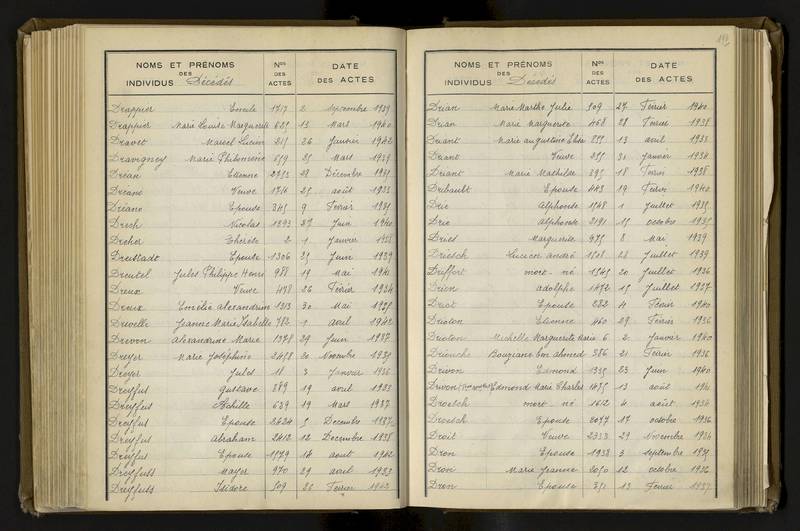 NOMS ET PRÉNOMS DES INDIVIDUS Décédés Nos DES ACTES DATE DES ACTES
Drappier Emile 1717 2 Septembre 1939
Drappier Marie Louise Marguerite 625 13 Mars 1940
Dravet Marcel Lucien 26 Janvier 1942
Dravigney Marie Philomene 659 Mars 1939
Dréan Etienne 28 Décembre
Dréano Veuve 25 août
Dréano Epouse 345 9 Février
Drech Nicolas 1393 27 Juin 1940
Drecher 2 1 Janvier
Epouse 1306 Juin 1939
Dreutel Jules Philippe Henri 988 19 Mai
Dreux Veuve 478 26 Février 1934
Dreux Emélie alexandrine 1213 30 Mai
Drevelle Jeanne Marie Isabelle 782 1 avril 1942
Drevon Alexandrine Marie 1378 29 Juin 1937
Dreyer Marie Joséphine 2458 20 Novembre
Dreyer Jules 18 3 Janvier 1936
Dreyfus Gustave 889 19 avril 1933
Dreyfus Achille 639 19 Mars 1937
Dreyfus Epouse 2624 5 Decembre 1937
Dreyfus Abraham 2412 12 Decembre 1938
Dreyfus Epouse 1579 14 aout 1942
Dreyfuss Mayer 970 29 avril 1933
Dreyfuss Isidore 509 22 Fevrier 1942
NOMS ET PRÉNOMS DES INDIVIDUS Décédés Nos DES ACTES DATE DES ACTES
Drian Marie Marthe Julie 509 27 Février 1940
Drian Marie Marguerite 468 28 Février 1938
Driant Marie augustine Elise 13 avril
Driant Veuve 255 31 Janvier 1934
Driant Marie Mathilde 395 18 Février 1938
Dribault Epouse 443 19 Février 1940
Dric Alphonse 1548 1 Juillet
Dric alphonse 2191 15 octobre
Dries Marguerite 975 8 Mai 1939
Driesch Lucien andré 1508 28 Juillet 1939
Driffort mort-né 1545 20 Juillet 1936
Drien adolphe 1472 15 Juillet 1937
Driot Epouse 282 4 Février 1940
Drioton Etienne 460 29 Février 1936
Drioton Michelle Marguerite Marie 6 2 Janvier 1940
Bouziane ben ahmed 386 21 Février 1936
Drivon Edmond 1335 23 Juin 1940
Drivon Edmond Marie Charles 1435 13 août
Droesch mort-né 1612 4 août 1934
Droesch Epouse 2077 17 octobre 1936
Droit Veuve 2333 29 Novembre 1934
Dron Epouse 1938 3 septembre
Dron Marie Jeanne 2050 12 octobre 1936
Dron Epouse 351 13 Février 1937